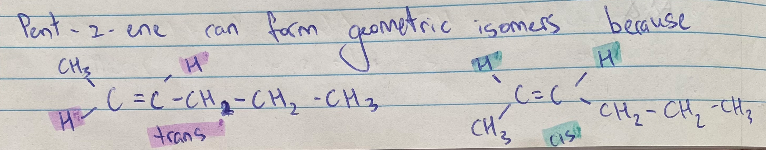 Pent-2-ene can form geometric isomers because
CH3 H H H
H C=C-CH2-CH2-CH3 C=C
CH3 CH2-CH2-CH3
trans cis